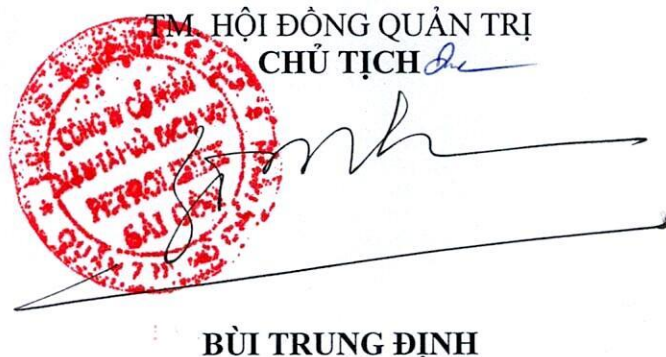 TM. HỘI ĐỒNG QUẢN TRỊ
CHỦ TỊCH
CÔNG TY CỔ PHẦN
VẬN TẢI VÀ DỊCH VỤ
PETROLIMEX
SÀI GÒN
QUẬN 7
BÙI TRUNG ĐỊNH